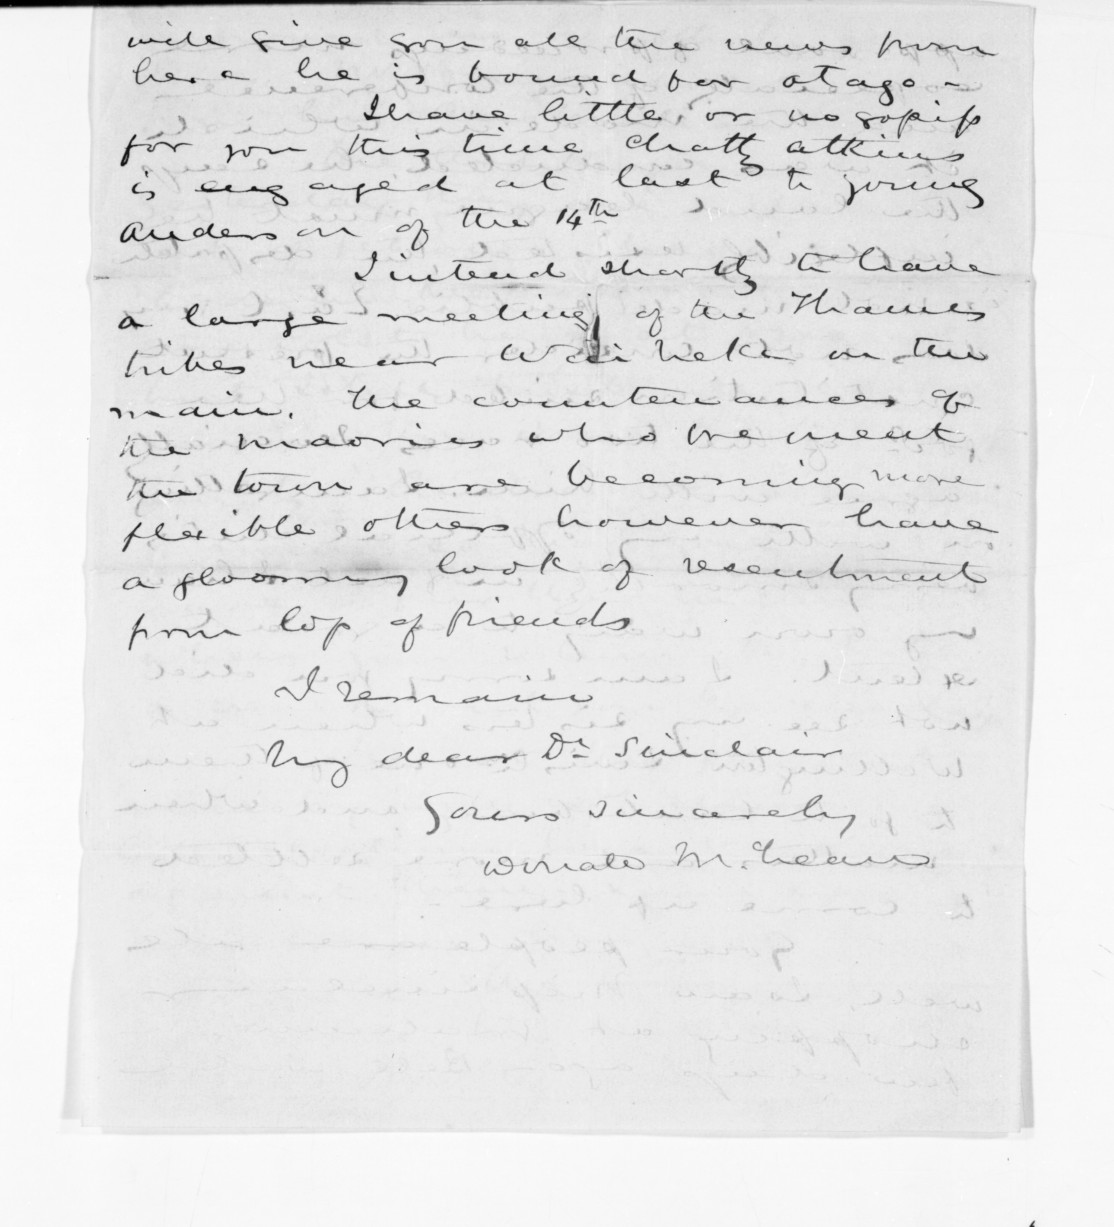 will give you all the news from
here he is bound for otago –
I have little or no gossip
for you this time Chatty atkins
is engaged at last to young
anderson of the 14th
I intend shortly to have
a large meeting of the Thames
tribes near Wai heke on the
main. The countenances of
the Maories who frequent
the town are becoming more
flexible others however have
a gloomy look of resentment
from loss of friends
I remain
My dear Dr Sinclair
Yours sincerely
Donald McLean